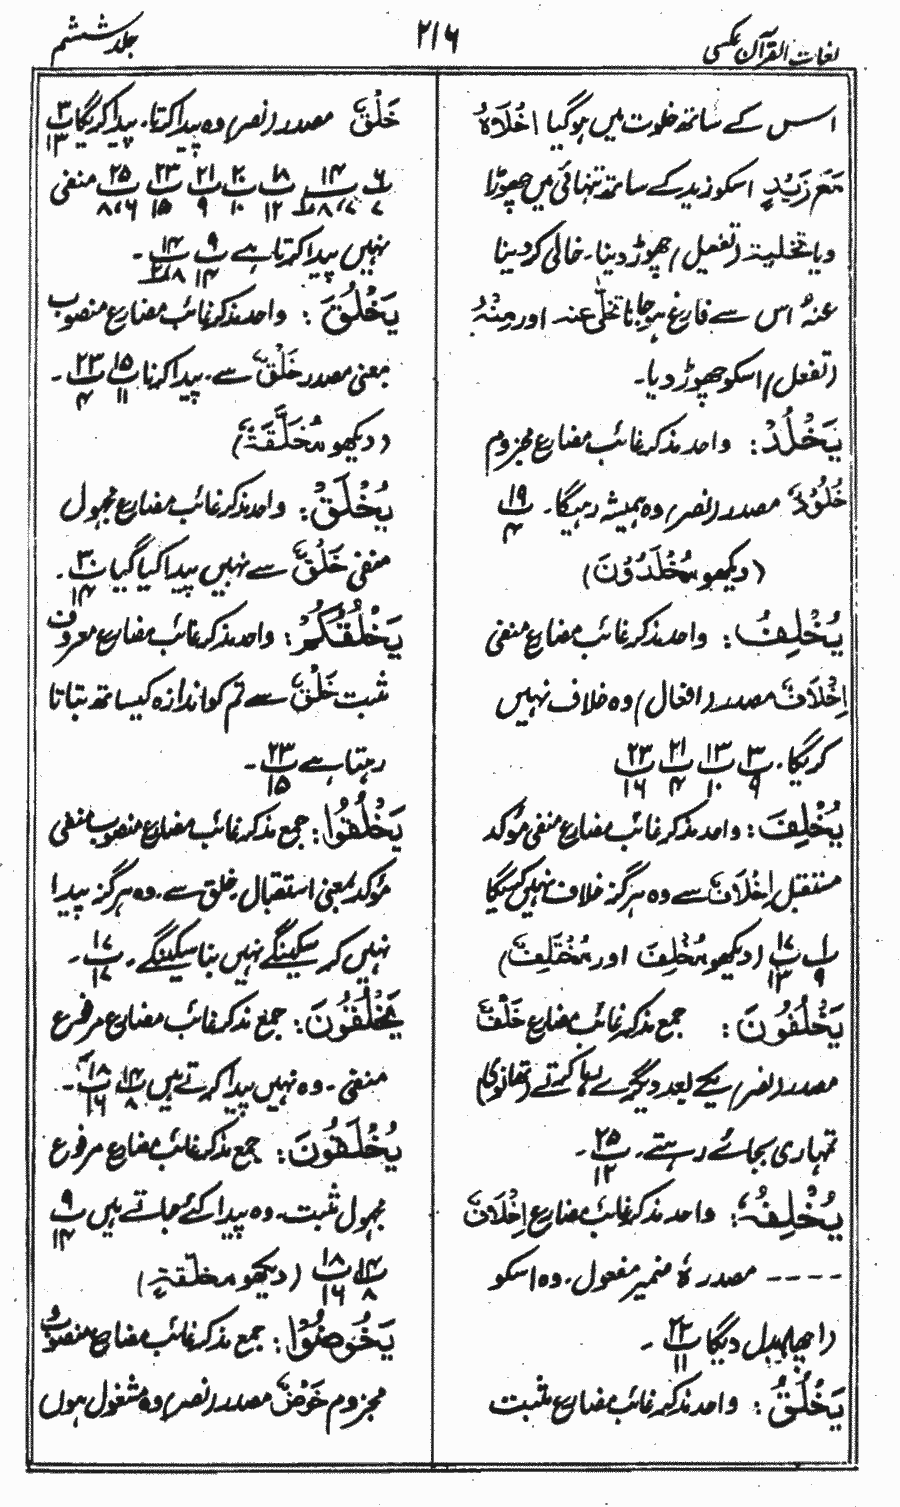 لغات القرآن عکسی
۲۱۶
جلد ششم
اس کے ساتھ خلوت میں ہوگیا أَخْلَاهُ
مَعَ زَیْدٍ اسکو زید کے ساتھ تنہائی میں چھوڑا
ویا تخلیتہ (تفعیل) چھوڑ دینا۔ خالی کر دینا
عنہُ اس سے فارغ ہو جانا تخلّٰی عنہ اور مِنْہُ
(تفعل) اسکو چھوڑ دیا۔
یَخْلُدْ: واحد مذکر غائب مضارع مجزوم
خُلُوْدٌ مصدر (نصر) وہ ہمیشہ رہیگا۔ ۱۹ ب ۴
(دیکھو مُخْلَدُوْنَ)
یُخْلِفُ: واحد مذکر غائب مضارع منفی
اِخْلَافٌ مصدر (افعال) وہ خلاف نہیں
کریگا۔ ۳ ب ۹ ۱۳ ب ۱۰ ۲۱ ب ۴ ۲۳ ب ۱۶
یُخْلِفَ: واحد مذکر غائب مضارع منفی مؤکد
مستقبل اِخْلَافٌ سے وہ ہرگز خلاف نہیں کریگا
۱ ب ۹ ۱۷ ب ۱۳ (دیکھو مُخْلِفَ اور مُخْتَلِفٌ)
یَخْلُفُوْنَ: جمع مذکر غائب مضارع خَلْفٌ
مصدر (نصر) یکے بعد دیگرے رہا کرتے (تھانوی)
تمہاری بجائے رہتے۔ ۲۵ ب ۱۲ ۔
یُخْلِفُہٗ: واحد مذکر غائب مضارع اِخْلَافٌ
۔۔۔۔ مصدر ہٗ ضمیر مفعول۔ وہ اسکو
(اچھا) بدل دیگا ۲۲ ب ۱۱ ۔
یَخْلُقُ: واحد مذکر غائب مضارع مثبت
خَلْقٌ مصدر (نصر) وہ پیدا کرتا۔ پیدا کریگا ۳ ب ۱۳
۶ ب ۷ ۱۴ ب ۷، ۸، ۱۸ ب ۱۲ ۲۰ ب ۱۰ ۲۱ ب ۹ ۲۳ ب ۱۵ ۲۵ ب ۶، ۸ منفی
نہیں پیدا کرتا ہے ۹ ب ۱۴ ۱۴ ب ۸ ۔
یَخْلُقَ: واحد مذکر غائب مضارع منصوب
بمعنی مصدر خَلْقٌ سے۔ پیدا کرنا ۱۵ ب ۱۱ ۲۳ ب ۴ ۔
(دیکھو مُخَلَّقَۃٌ)
یُخْلَقْ: واحد مذکر غائب مضارع مجہول
منفی خَلْقٌ سے نہیں پیدا کیا گیا ۳۰ ب ۱۴ ۔
یَخْلُقُکُمْ: واحد مذکر غائب مضارع معروف
مثبت خَلْقٌ سے تم کو اندازہ کیساتھ بناتا
رہتا ہے ۲۳ ب ۱۵ ۔
یَخْلُقُوْا: جمع مذکر غائب مضارع منصوب منفی
مؤکد بمعنی استقبال۔ خلق سے۔ وہ ہرگز پیدا
نہیں کر سکینگے نہیں بنا سکینگے۔ ۱۷ ب ۱۷ ۔
یَخْلُقُوْنَ: جمع مذکر غائب مضارع مرفوع
منفی۔ وہ نہیں پیدا کرتے ہیں ۱۴ ب ۸ ۱۸ ب ۱۶ ۔
یُخْلَقُوْنَ: جمع مذکر غائب مضارع مرفوع
مجہول مثبت۔ وہ پیدا کئے جاتے ہیں ۹ ب ۱۴
۱۴ ب ۸ ۱۸ ب ۱۶ (دیکھو مخلقۃٍ)
یَخُوْضُوْا: جمع مذکر غائب مضارع منصوب و
مجزوم خَوْضٌ مصدر (نصر) وہ مشغول ہوں